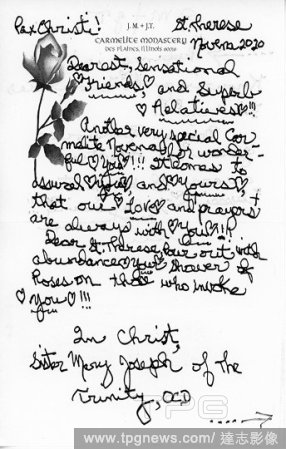 Pax Christi!
St. Therese
Novena 2020
J. M. + J.T.
CARMELITE MONASTERY
DES PLAINES, ILLINOIS 60016
Dearest, Sensational
♡Friends,♡ and Superb
♡Relatives♡!!!
Another very special Car-
melite Novena♡for wonder-
ful♡You♡!!! It comes to
assure♡you♡and♡yours♡
that our♡Love♡and prayers
are always with♡You♡!!!
Dear St. Therese, Pour out with
abundance♡your Shower of
Roses on those who invoke
♡You♡!!!
In Christ,
Sister Mary Joseph of the
Trinity, OCD
TPG
www.tpgnews.com/達志影像